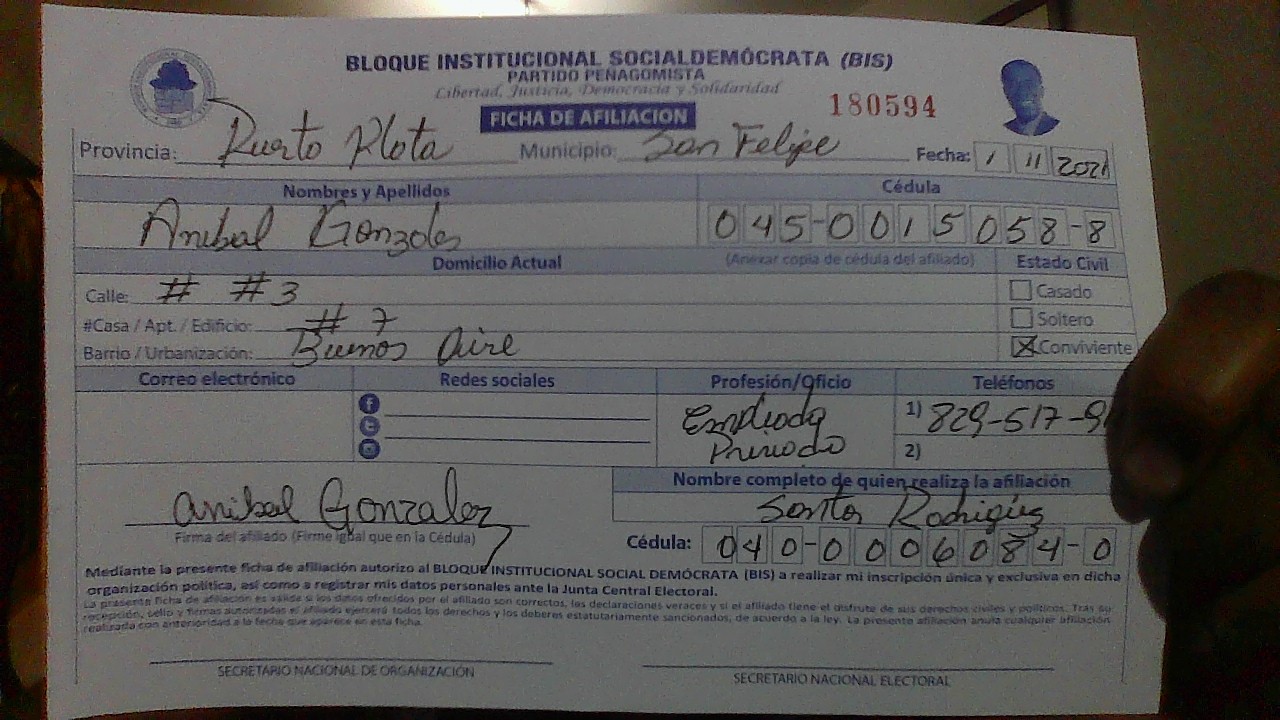 BLOQUE INSTITUCIONAL SOCIALDEMÓCRATA (BIS)
PARTIDO PEÑAGOMISTA
Libertad, Justicia, Democracia y Solidaridad
FICHA DE AFILIACION
180594
Provincia: Puerto Plata Municipio: San Felipe Fecha: 1 11 2021
Nombres y Apellidos Cédula
Anibal Gonzales 045-0015058-8
Domicilio Actual (Anexar copia de cédula del afiliado) Estado Civil
Calle: # #3 Casado
#Casa / Apt. / Edificio: # 7 Soltero
Barrio / Urbanización: Buenos Aire Conviviente
Correo electrónico Redes sociales Profesión/Oficio Teléfonos
Empleado 1) 829-517-9
Privado 2)
Nombre completo de quien realiza la afiliación
Anibal Gonzalez Santos Rodriguez
Firma del afiliado (Firme igual que en la Cédula) Cédula: 040-0006084-0
Mediante la presente ficha de afiliación autorizo al BLOQUE INSTITUCIONAL SOCIAL DEMÓCRATA (BIS) a realizar mi inscripción única y exclusiva en dicha
organización política, así como a registrar mis datos personales ante la Junta Central Electoral.
La presente ficha de afiliación es válida si los datos ofrecidos por el afiliado son correctos, las declaraciones veraces y si el afiliado tiene el disfrute de sus derechos civiles y políticos. Tras su
recepción, sello y firmas autorizadas el afiliado ejercerá todos los derechos y los deberes estatutariamente sancionados, de acuerdo a la ley. La presente afiliación anula cualquier afiliación
realizada con anterioridad a la fecha que aparece en esta ficha.
SECRETARIO NACIONAL DE ORGANIZACIÓN SECRETARIO NACIONAL ELECTORAL